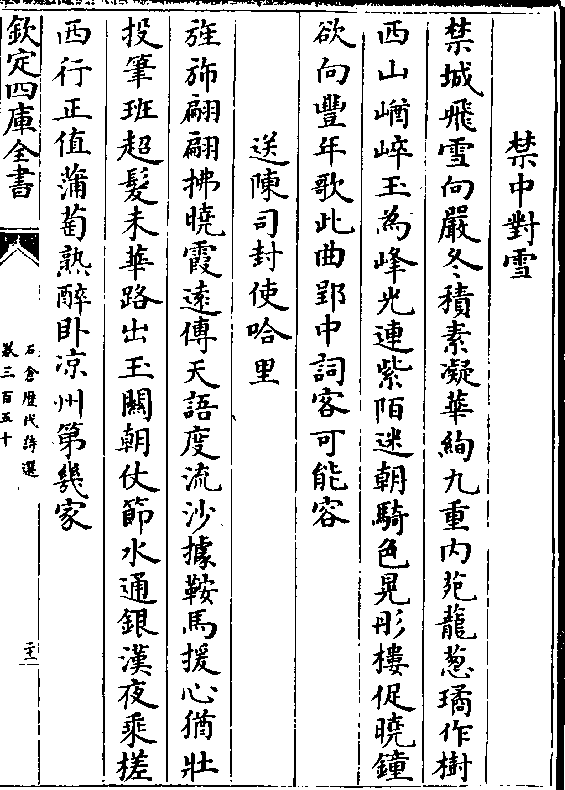 禁中對雪
禁城飛雪向嚴冬積素凝華絢九重内苑蘢葱璚作樹
西山崷崪玉為峰光連紫陌迷朝騎色晃彤樓促曉鐘
欲向豐年歌此曲郢中詞客可能容
送陳司封使哈里
旌斾翩翩拂曉霞逺傳天語度流沙據鞍馬援心猶壯
投筆班超髮未華路出玉闗朝仗節水通銀漢夜乘槎
西行正值蒲萄熟醉卧凉州第幾家
欽定四庫全書
石倉歴代詩選
卷三百五十
二十二